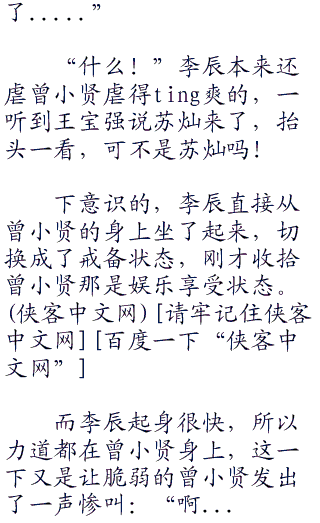 了.....”
“什么！”李辰本来还
虐曾小贤虐得ting爽的，一
听到王宝强说苏灿来了，抬
头一看，可不是苏灿吗！
下意识的，李辰直接从
曾小贤的身上坐了起来，切
换成了戒备状态，刚才收拾
曾小贤那是娱乐享受状态。
(侠客中文网)[请牢记住侠客
中文网][百度一下“侠客中
文网”]
而李辰起身很快，所以
力道都在曾小贤身上，这一
下又是让脆弱的曾小贤发出
了一声惨叫：“啊...